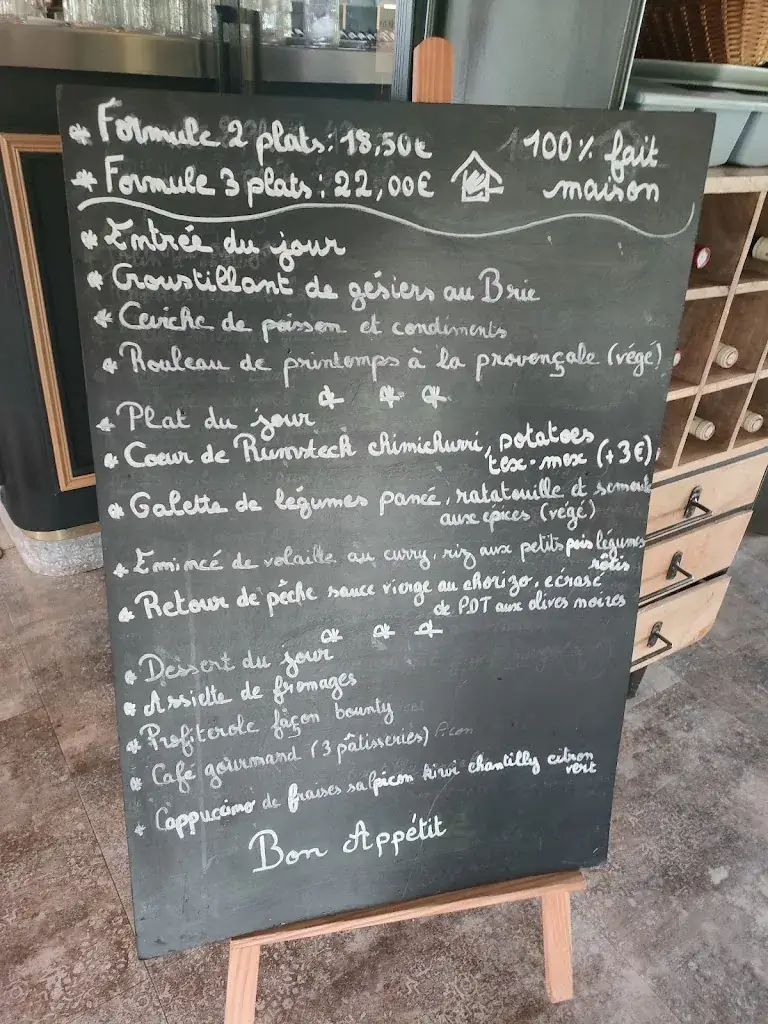 * Formule 2 plats : 18,50€
* Formule 3 plats : 22,00€
100% fait
maison
* Entrée du jour
* Croustillant de gésiers au Brie
* Ceviche de poisson et condiments
* Rouleau de printemps à la provençale (végé)
* * *
* Plat du jour
* Coeur de Rumsteck chimichurri, potatoes
tex-mex (+3€)
* Galette de légumes panée, ratatouille et semoule
aux épices (végé)
* Emincé de volaille au curry, riz aux petits pois légumes
rôtis
* Retour de pêche sauce vierge au chorizo, écrasé
de PDT aux olives noires
* * *
* Dessert du jour
* Assiette de fromages
* Profiterole façon bounty
* Café gourmand (3 pâtisseries)
* Cappuccino de fraises salpicon kiwi chantilly citron
vert
Bon Appétit